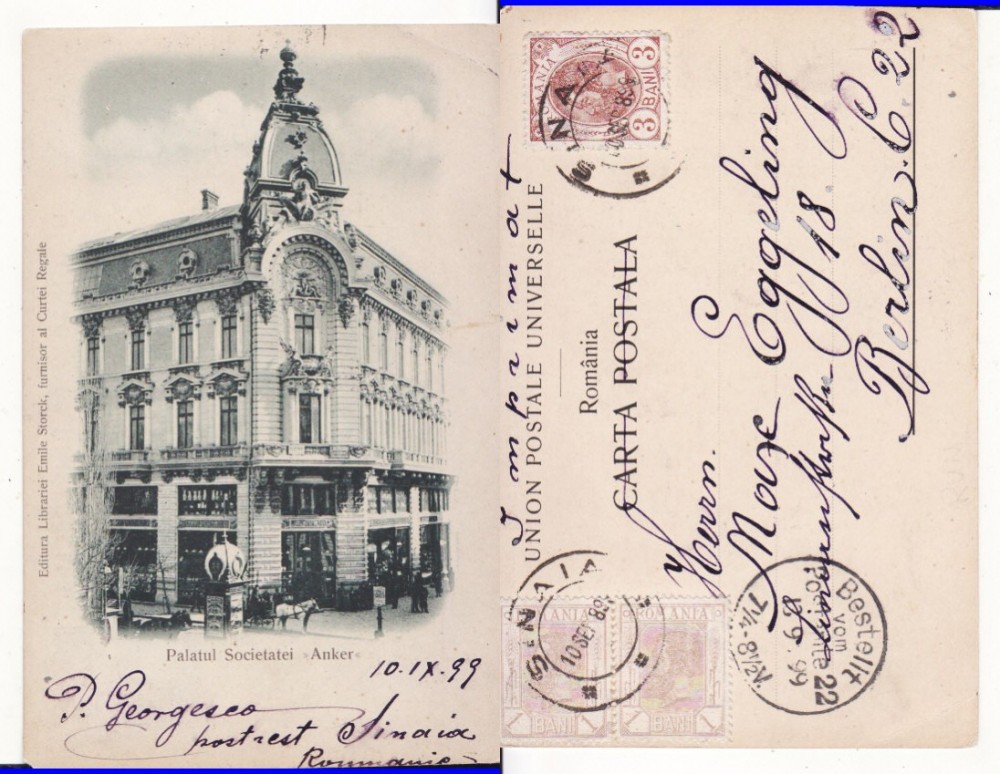 Editura Librariei Emile Storck, furnisor al Curtei Regale
Palatul Societatei »Anker«
10.IX.99
P. Georgesco
postrest Sinaia
Roumanie
Imprimat
UNION POSTALE UNIVERSELLE
România
CARTA POSTALA
Herrn.
Max Eggeling
18
Berlin. C. 22
ROMANIA
3 BANI 3
SINAIA
SINAIA
10 SEP
ROMANIA
1 BANI 1
ROMANIA
1 BANI 1
Bestellt
vom
Postamte 22
9. 99
7¼-8½V.